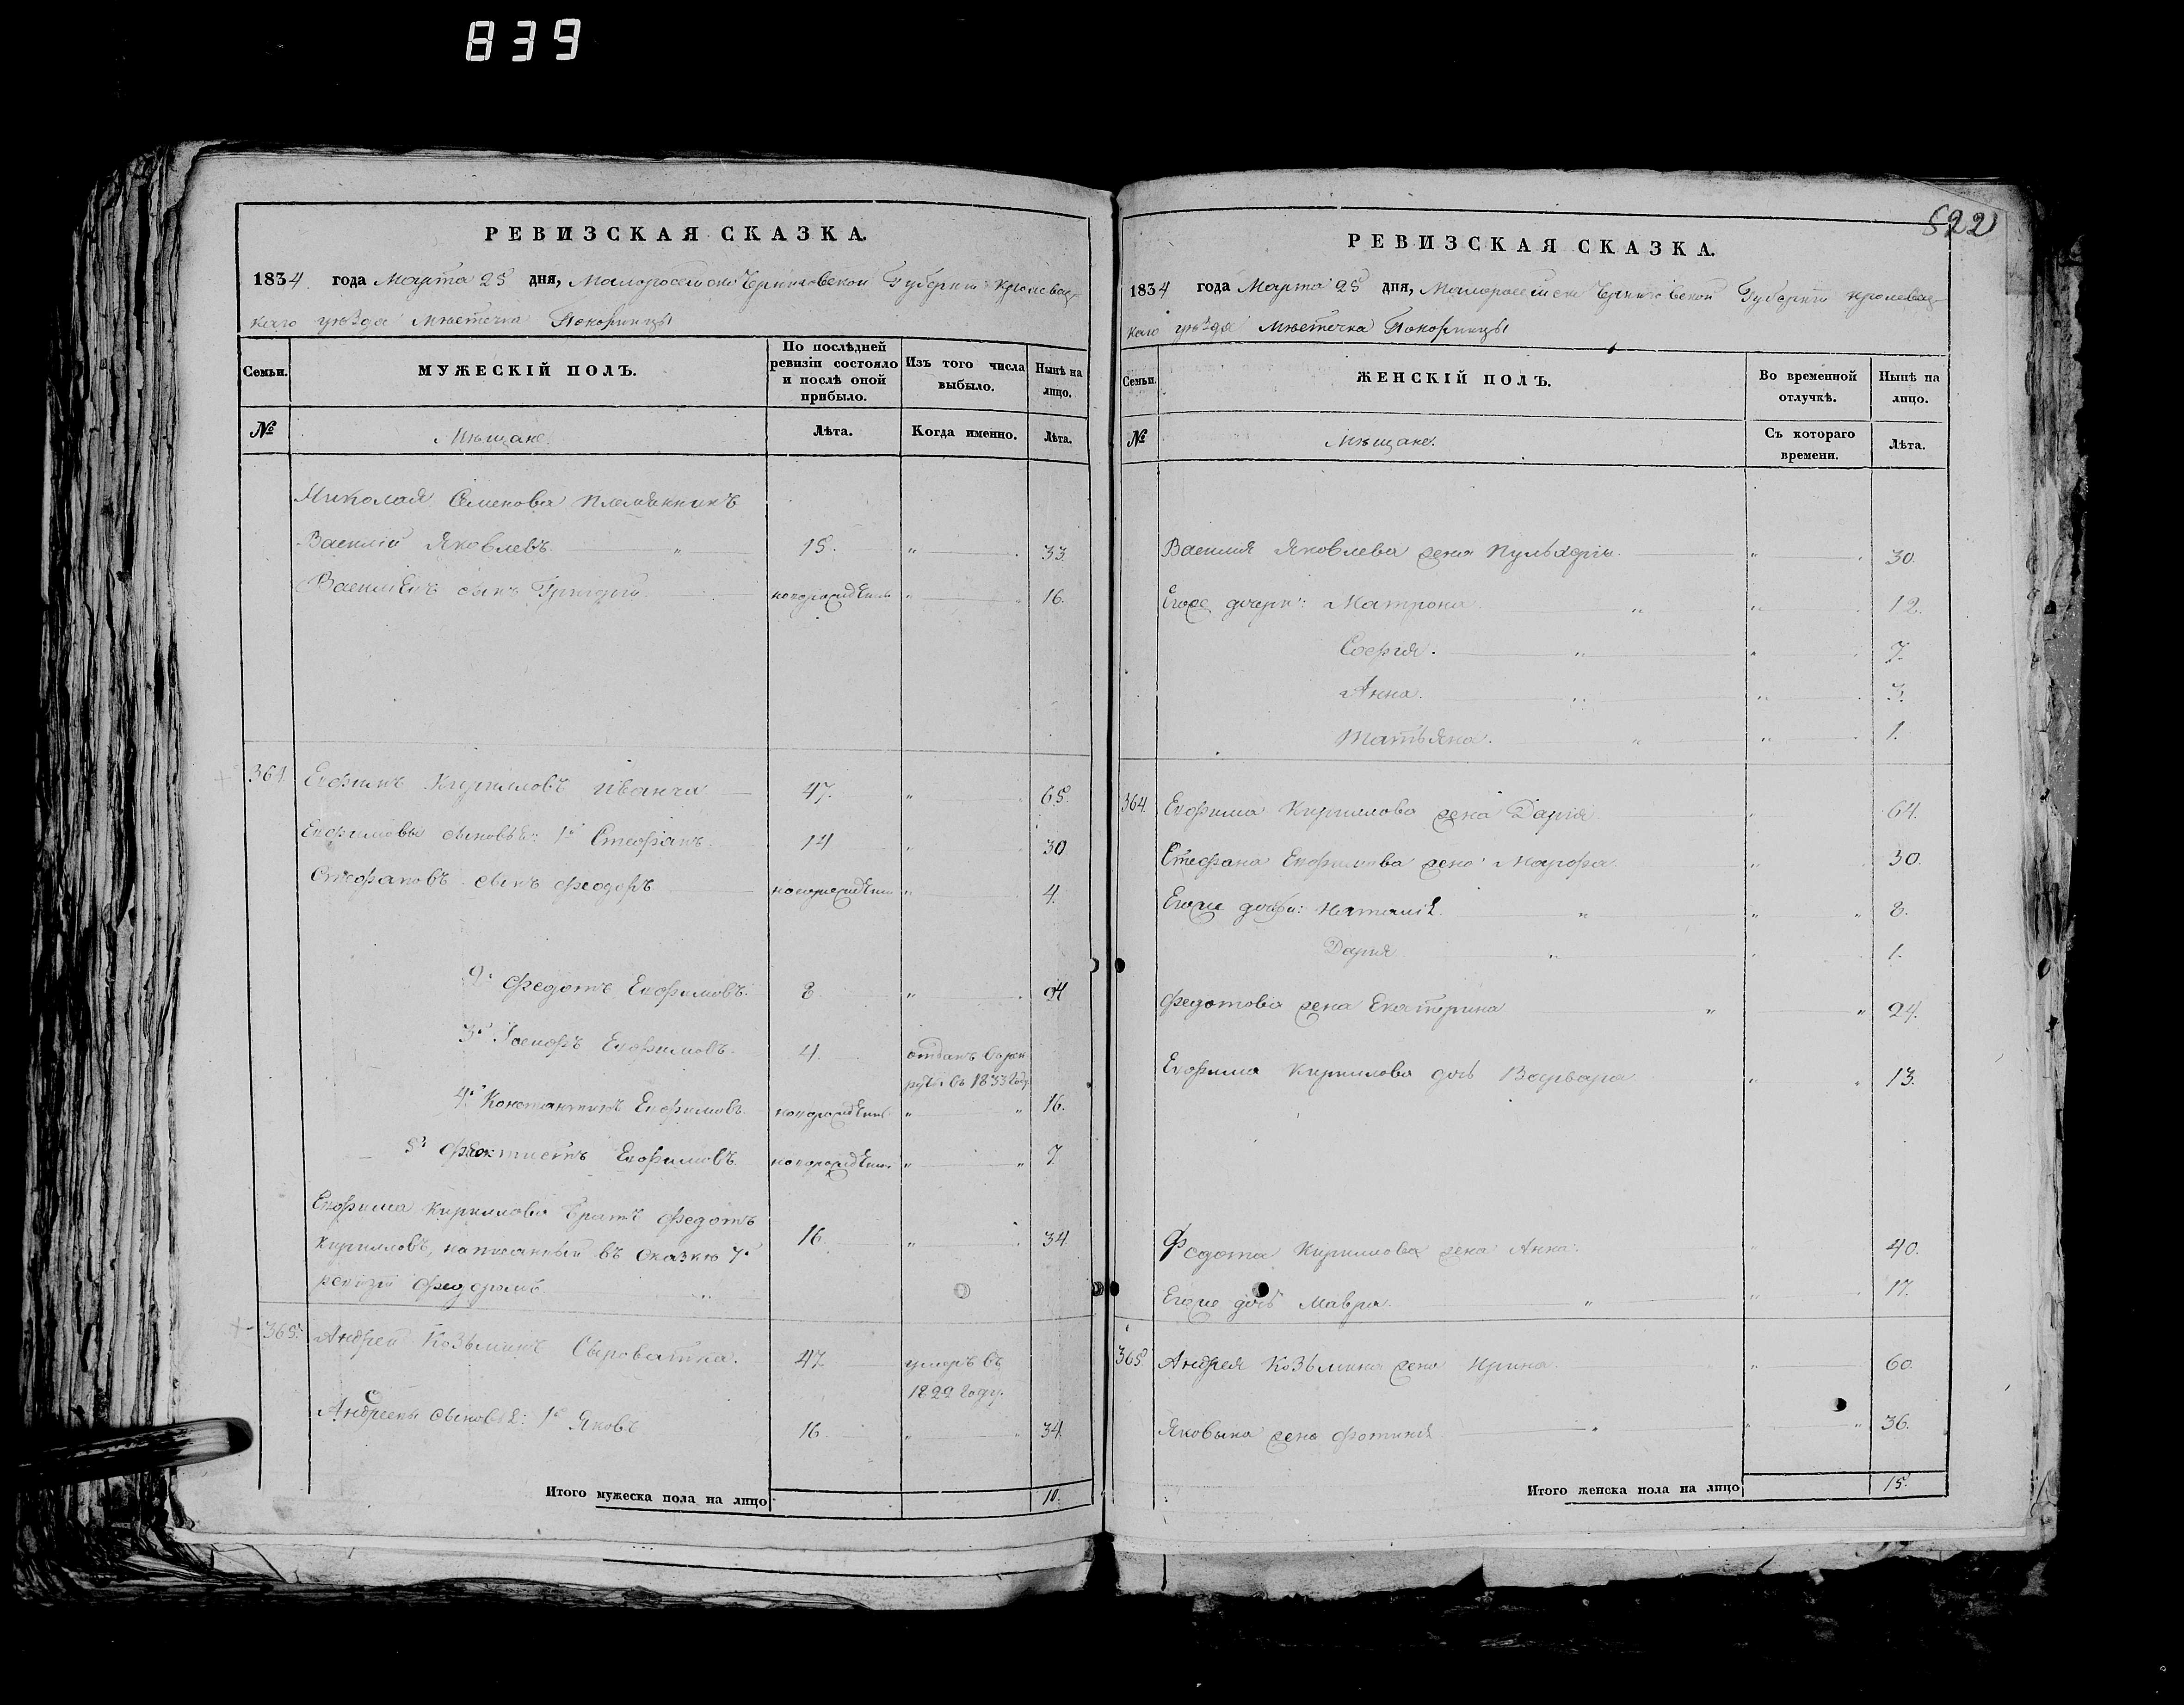 839
РЕВИЗСКАЯ СКАЗКА.
1834 года Марта 25 дня, Малороссийской Черниговской Губернии Кролевец-
каго уѣзда Мѣстечка Понорницы
Семьи.
МУЖЕСКІЙ ПОЛЪ.
По послѣдней ревизіи состояло и послѣ оной прибыло.
Изъ того числа выбыло.
Нынѣ на лицо.
№
Мѣщане.
Лѣта.
Когда именно.
Лѣта.
Николая Семенова племянникъ
Василій Яковлевъ. 15. " 33.
Васильевъ сынъ Григорій. новорожденъ " 16.
364 Евфимъ Кирилловъ Иванча 47. " 65.
Евфимовы сыновья: 1й Стефанъ. 14 " 30
Стефановъ сынъ Феодоръ новорожденъ " 4.
2й Федотъ Евфимовъ. 8. " 24
3й Іосифъ Евфимовъ. 4. отданъ въ рек-
руты въ 1833 году.
4й Константинъ Евфимовъ. новорожденъ " 16.
5й Феоктистъ Евфимовъ новорожденъ " 7.
Евфима Кириллова братъ Федотъ
Кирилловъ, написанный въ сказкѣ 7й 16. " 34.
ревизіи Федоромъ "
365. Андрей Козьминъ Сыроватка. 47. умеръ въ
1822 году.
Андреевы сыновья: 1й Яковъ 16. " 34.
Итого мужеска пола на лицо 10.
522
РЕВИЗСКАЯ СКАЗКА.
1834 года Марта 25 дня, Малороссійской Черниговской Губерніи Кролевец-
каго уѣзда Мѣстечка Понорницы
Семьи.
ЖЕНСКІЙ ПОЛЪ.
Во временной отлучкѣ.
Нынѣ на лицо.
№
Мѣщане.
Съ котораго времени.
Лѣта.
Василія Яковлева жена Пульхерія. " 30.
Егоже дочери: Матрона. " " 12.
Софія. " " 7.
Анна. " " 3.
Татьяна. " " 1.
364. Евфима Кириллова жена Дарія. " 64.
Стефана Евфимова жена Марфа. " 30.
Егоже дочери: Наталія. " " 8.
Дарія " 1.
Федотова жена Екатерина " " 24.
Евфима Кириллова дочь Варвара " 13.
Федота Кириллова жена Анна. " 40.
Егоже дочь Мавра. " " 17.
365. Андрея Козьмина жена Ирина. " 60.
Яковына жена Фотинія " " 36.
Итого женска пола на лицо 15.